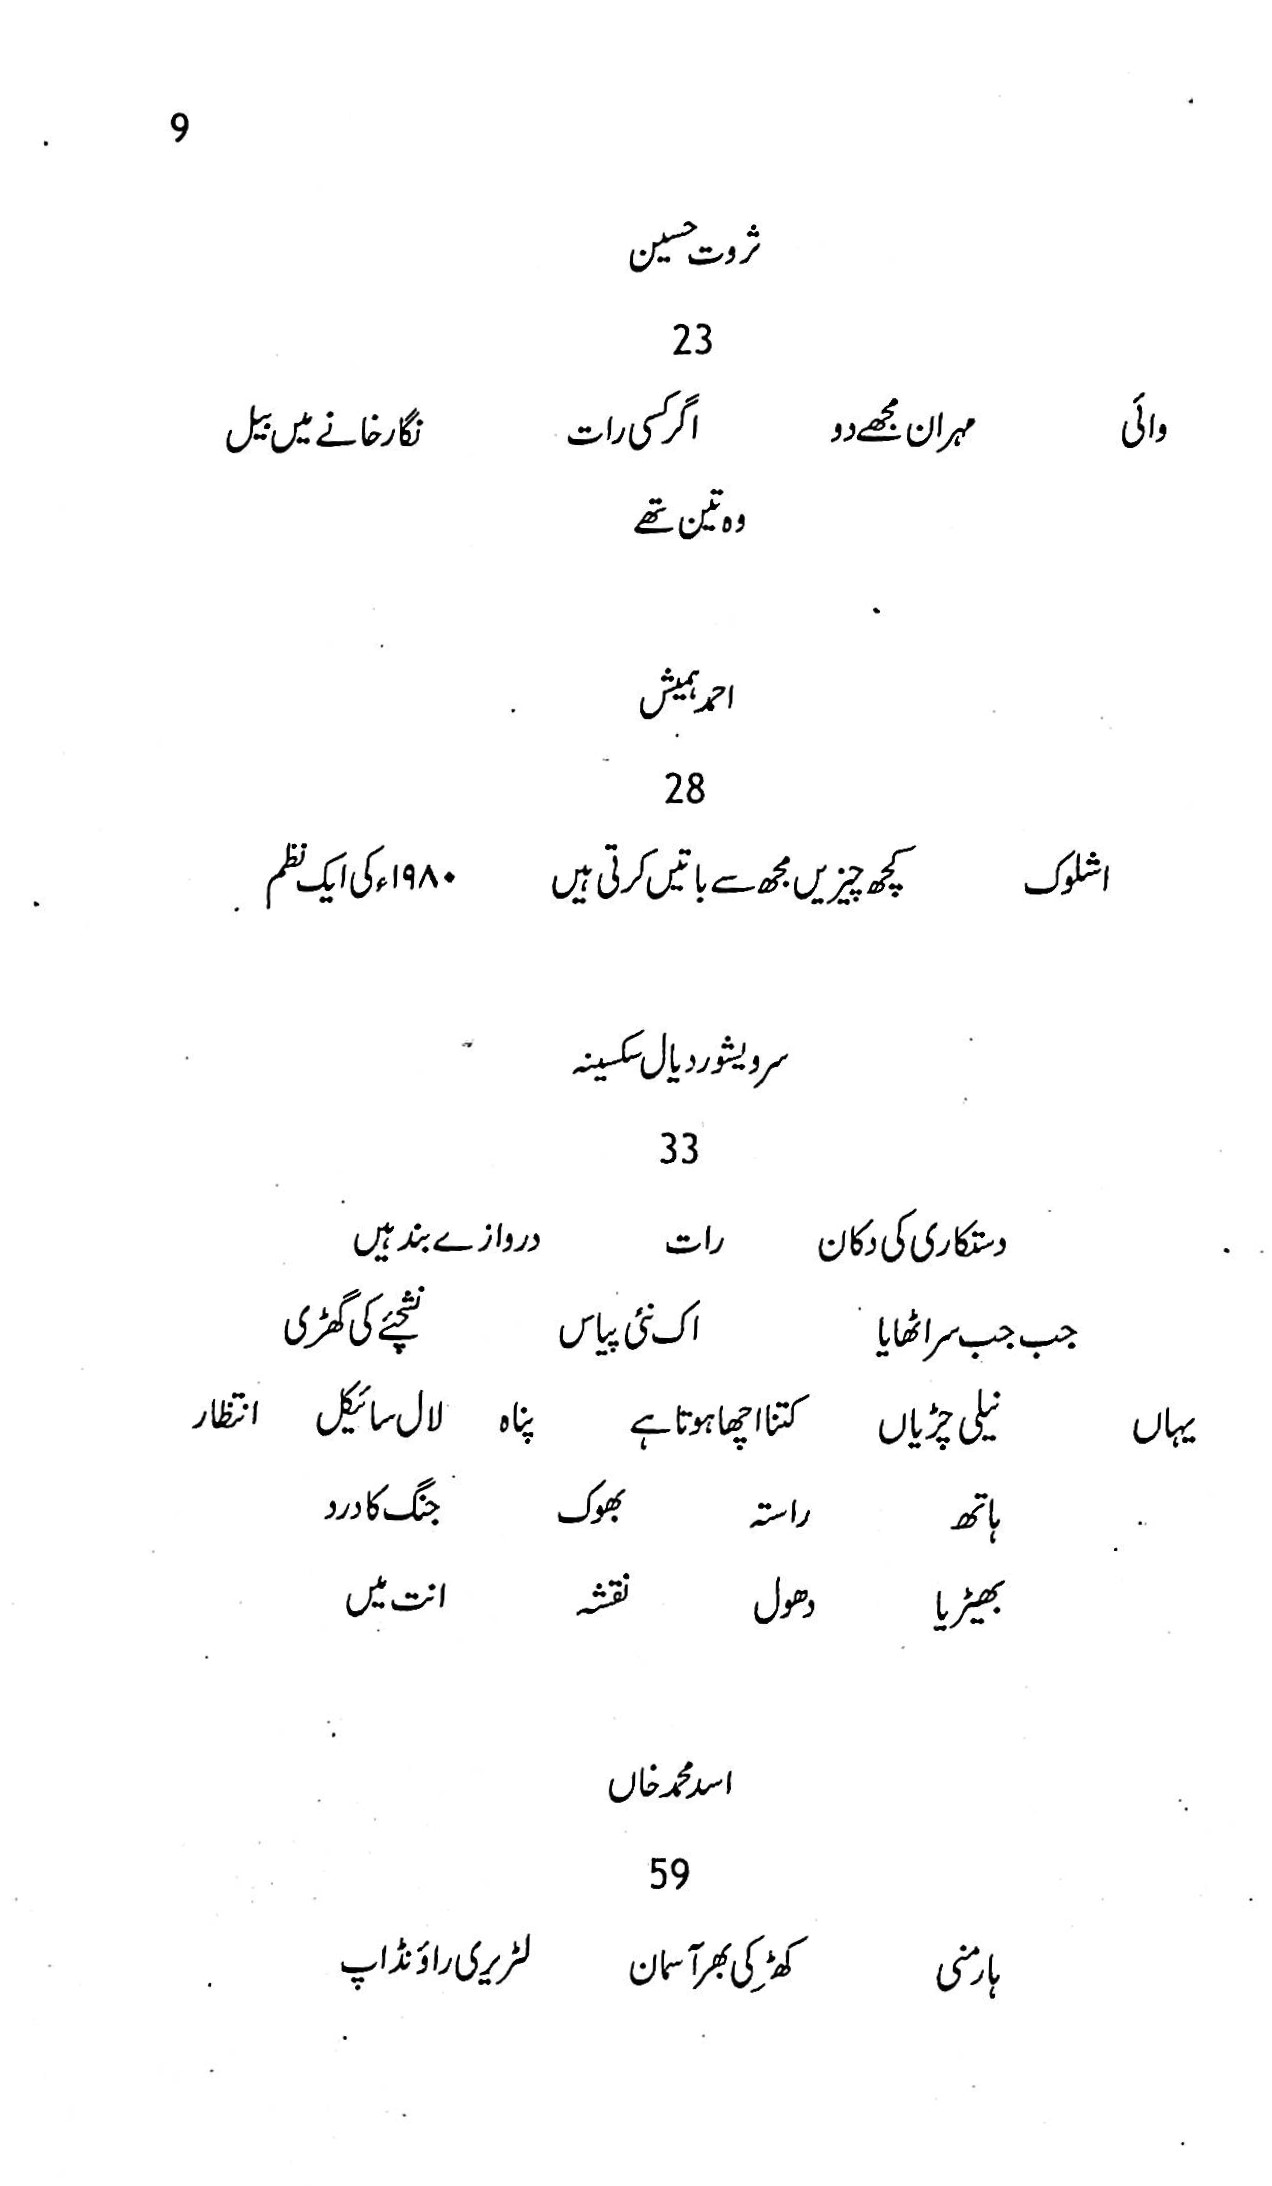 9
ثروت حسین
23
وائی مہران مجھے دو اگر کسی رات نگار خانے میں بیل
وہ تین تھے
احمد ہمیش
28
اشلوک کچھ چیزیں مجھ سے باتیں کرتی ہیں ۱۹۸۰ء کی ایک نظم
سرویشور دیال سکسینہ
33
دستکاری کی دکان رات دروازے بند ہیں
جب جب سر اٹھایا اک نئی پیاس نشچئے کی گھڑی
یہاں نیلی چڑیاں کتنا اچھا ہوتا ہے پناہ لال سائیکل انتظار
ہاتھ راستہ بھوک جنگ کا درد
بھیڑیا دھول نقشہ انت میں
اسد محمد خاں
59
ہارمنی کھڑکی بھر آسمان لٹریری راؤنڈ اپ